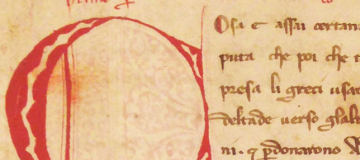 Osa e assai certana
puta che poi che t
presa li greci usar
deltade uerso glalt
ni. q pdonarono